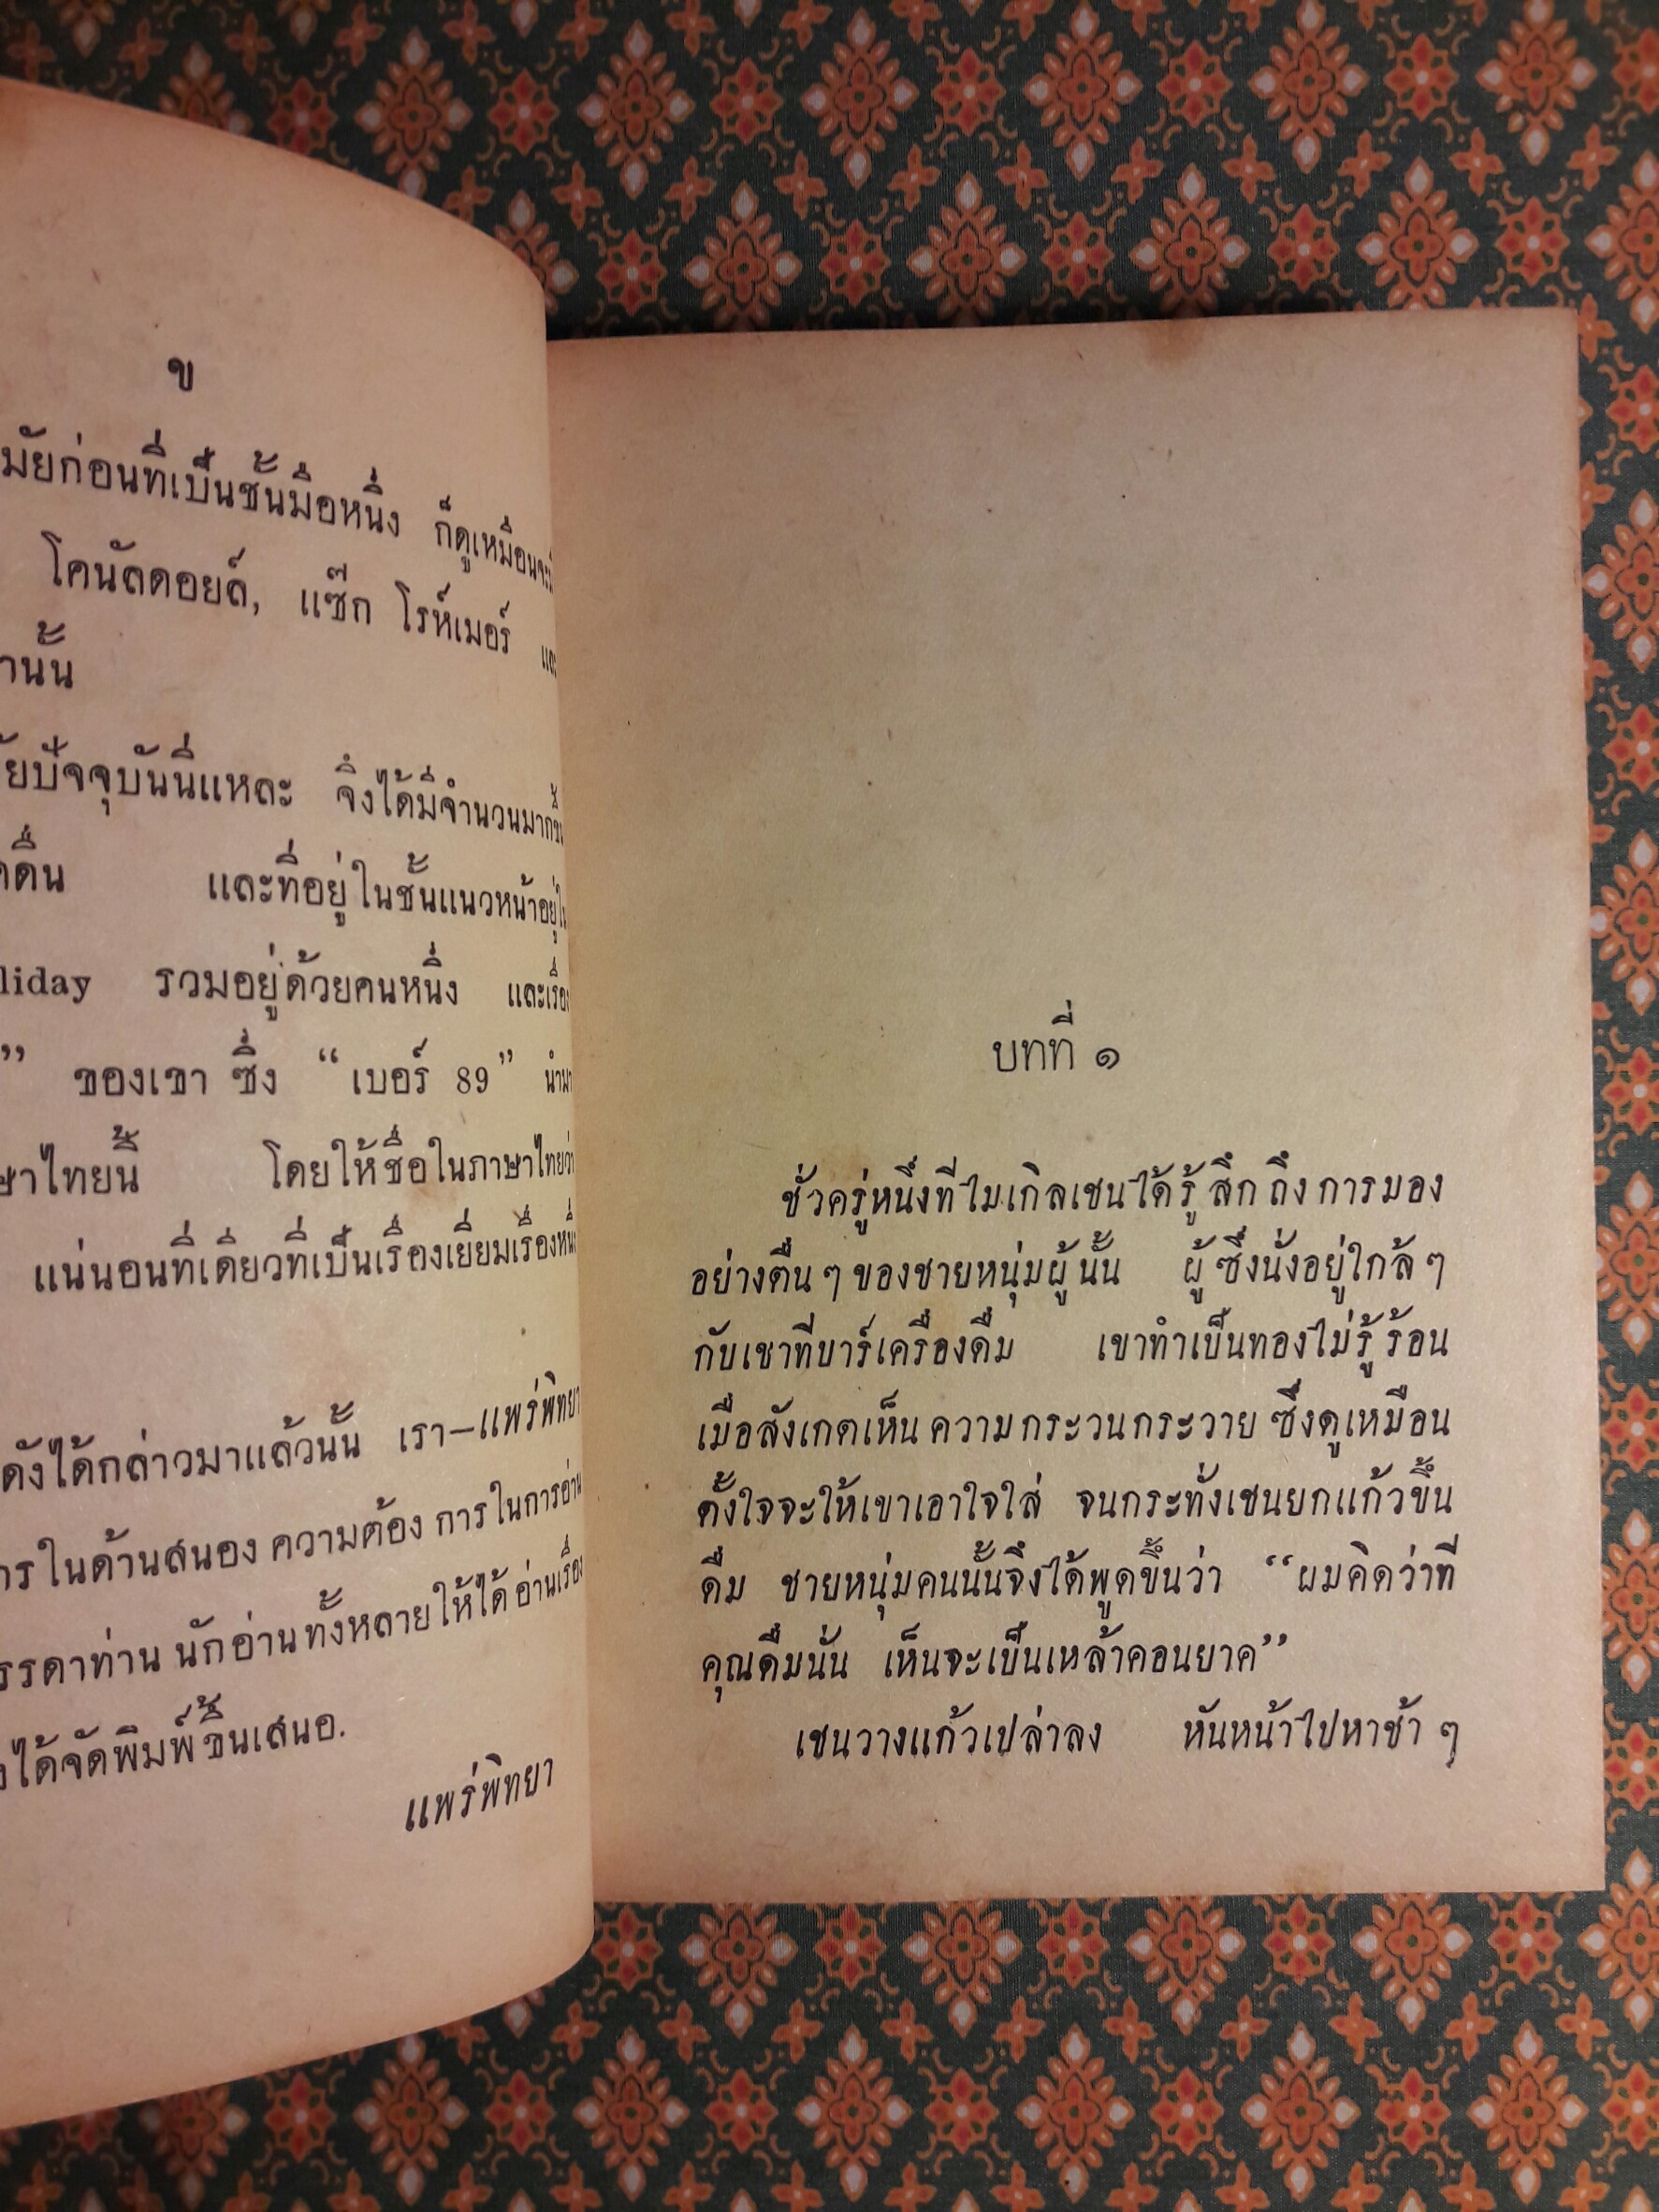 ข
มัยก่อนที่เป็นชั้นมือหนึ่ง ก็ดูเหมือน
โคนัลดอยล์, แซ๊ก โรห์เมอร์
นั้น
ปัจจุบันนี่แหละ จึงได้มีจำนวนมาก
ดื่น และที่อยู่ในชั้นแนวหน้าอยู่
liday รวมอยู่ด้วยคนหนึ่ง และเรื่อง
” ของเขา ซึ่ง “เบอร์ 89”
ษาไทยนี้ โดยให้ชื่อในภาษาไทย
แน่นอนทีเดียวที่เป็นเรื่องเยี่ยมเรื่อง
ดังได้กล่าวมาแล้วนั้น เรา—แพร่พิทยา
ารในด้านสนองความต้องการในการอ่าน
รรดาท่านนักอ่านทั้งหลายให้ได้อ่านเรื่อง
ได้จัดพิมพ์ขึ้นเสนอ.
แพร่พิทยา
บทที่ ๑
ชั่วครู่หนึ่งที่ไมเกิลเชนได้รู้สึกถึงการมอง
อย่างตื่นๆของชายหนุ่มผู้นั้น ผู้ซึ่งนั่งอยู่ใกล้ๆ
กับเขาที่บาร์เครื่องดื่ม เขาทำเป็นทองไม่รู้ร้อน
เมื่อสังเกตเห็นความกระวนกระวายซึ่งดูเหมือน
ตั้งใจจะให้เขาเอาใจใส่ จนกระทั่งเชนยกแก้วขึ้น
ดื่ม ชายหนุ่มคนนั้นจึงได้พูดขึ้นว่า “ผมคิดว่าที่
คุณดื่มนั่น เห็นจะเป็นเหล้าคอนยาค”
เชนวางแก้วเปล่าลง หันหน้าไปหาช้า ๆ